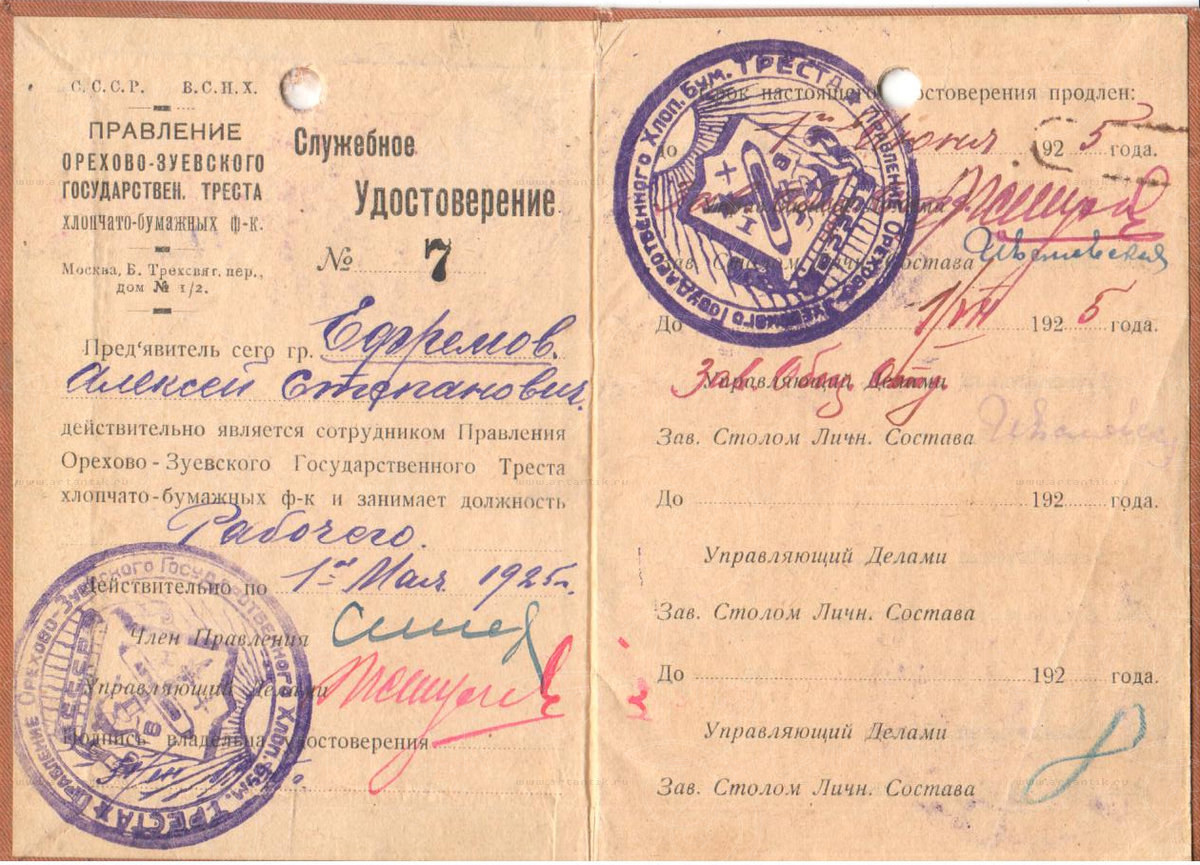 С.С.С.Р. В.С.Н.Х.
ПРАВЛЕНИЕ
ОРЕХОВО-ЗУЕВСКОГО
ГОСУДАРСТВЕН. ТРЕСТА
ХЛОПЧАТО-БУМАЖНЫХ Ф-К.
Москва, Б. Трехсвят. пер.,
дом № 1/2.
Служебное
Удостоверение
№ 7
Пред'явитель сего гр. Ефремов.
Алексей Степанович.
действительно является сотрудником Правления
Орехово-Зуевского Государственного Треста
хлопчато-бумажных ф-к и занимает должность
Рабочего.
Действительно по 1го Мая 1925г.
Член Правления
Управляющий Делами
Подпись владельца удостоверения
Правление Орехово-Зуевского Государственного Хлоп. Бум. Треста
Срок настоящего удостоверения продлен:
до 1го Июня 1925 года.
Зав. Столом Личн. Состава
До 1925 года.
Управляющий Делами
Зав. Общ
Зав. Столом Личн. Состава
До 192 года.
Управляющий Делами
Зав. Столом Личн. Состава
До 192 года.
Управляющий Делами
Зав. Столом Личн. Состава
Правление Орехово-Зуевского Государственного Хлоп. Бум. Треста